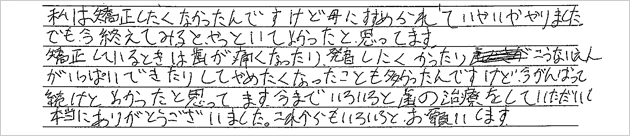 私は矯正したくなかったんですけど母にすすめられていやいややりました
でも今終えてみるとやっといてよかったと思ってます。
矯正しているときは歯が痛くなったり、発音しにくかったり こうないえん
がいっぱいできたりしてやめたくなったことも多かったんですけど、今がんばって
続けて よかったと思って ます。今まで いろいろと歯の治療をしていただいて
本当にありがとうございました。これからもいろいろとお願いします